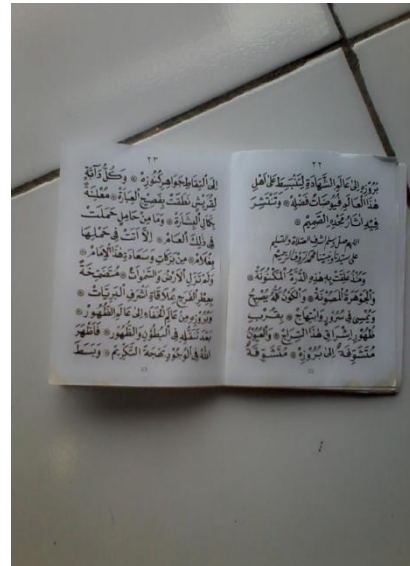 ٢٢
بُرُوْزِهِ إِلَى عَالَمِ الشَّهَادَةِ لِتَنْبَسِطَ عَلَى أَهْلِ
هٰذَا الْعَالَمِ فُيُوْضَاتُ فَضْلِهِ ۞ وَتَنْتَشِرَ
فِيْهِ اٰثَارُ مَجْدِهِ الصَّمِيْمِ ۞
اللهم صل وسلم أشرف الصلاة والتسليم
على سيدنا ونبينا محمد الرؤوف الرحيم
وَمُنْذُ عَلِقَتْ بِهِ هٰذِهِ الدُّرَّةُ الْمَكْنُوْنَةُ ۞
وَالْجَوْهَرَةُ الْمَصُوْنَةُ ۞ وَالْكَوْنُ كُلُّهُ يُصْبِحُ
وَيُمْسِى فِى سُرُوْرٍ وَابْتِهَاجٍ ۞ بِقُرْبِ
ظُهُوْرِ إِشْرَاقِ هٰذَا السِّرَاجِ ۞ وَالْعُيُوْنُ
مُتَشَوِّفَةٌ إِلَى بُرُوْزِهِ ۞ مُتَشَوِّقَةٌ
22
٢٣
إِلَى الْتِقَاطِ جَوَاهِرِ كُنُوْزِهِ ۞ وَكُلُّ دَآبَّةٍ
لِقُرَيْشٍ نَطَقَتْ بِفَصِيْحِ الْعِبَارَةِ ۞ مُعْلِنَةً
بِكَمَالِ الْبِشَارَةِ ۞ وَمَا مِنْ حَامِلٍ حَمَلَتْ
فِى ذٰلِكَ الْعَامِ ۞ إِلَّا أَتَتْ فِى حَمْلِهَا
بِغُلَامٍ ۞ مِنْ بَرَكَاتِ وَسَعَادَةِ هٰذَا الْإِمَامِ ۞
وَلَمْ تَزَلِ الْأَرْضُ وَالسَّمٰوَاتُ ۞ مُتَضَمِّخَةً
بِعِطْرِ الْفَرَحِ بِمُلَاقَاةِ أَشْرَفِ الْبَرِيَّاتِ ۞
وَبُرُوْزِهِ مِنْ عَالَمِ الْخَفَاءِ إِلَى عَالَمِ الظُّهُوْرِ ۞
بَعْدَ تَنَقُّلِهِ فِى الْبُطُوْنِ وَالظُّهُوْرِ ۞ فَأَظْهَرَ
اللهُ فِى الْوُجُوْدِ بَهْجَةَ التَّكْرِيْمِ ۞ وَبَسَطَ
23